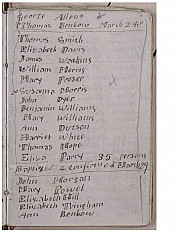 George Allens
Thomas Benbow March 24th
Thomas Smith
Elizabeth Davis
James Watkins
William Morris
Mary Prosser
Susanna Morris
John Dyer
Benjamin Williams
Mary Williams
Ann Dutson
Harriet White
Thomas Hope
Eliza Parry 35 persons
Baptised & confirmed March
John Morgan
Mary Powel
Elizabeth Hill
Elizabeth Tringham
Ann Benbow